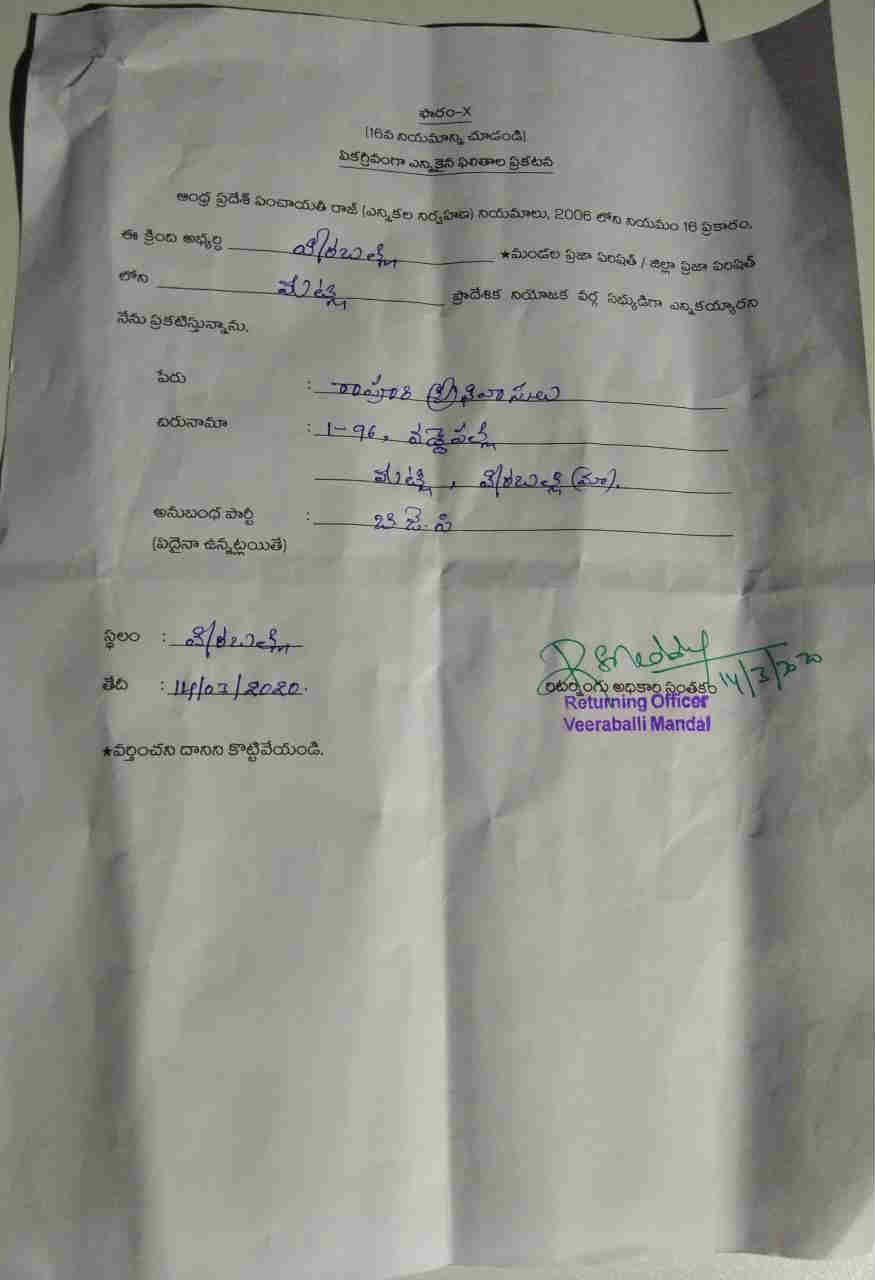 ఫారం-X
(16వ నియమాన్ని చూడండి)
ఏకగ్రీవంగా ఎన్నికైన ఫలితాల ప్రకటన
ఆంధ్ర ప్రదేశ్ పంచాయతీ రాజ్ (ఎన్నికల నిర్వహణ) నియమాలు, 2006 లోని నియమం 16 ప్రకారం,
ఈ క్రింది అభ్యర్థి వీరబల్లి ★మండల ప్రజా పరిషత్ / జిల్లా ప్రజా పరిషత్
లోని మట్లి ప్రాదేశిక నియోజక వర్గ సభ్యుడిగా ఎన్నికయ్యారని
నేను ప్రకటిస్తున్నాను.
పేరు : రాపూరి శ్రీనివాసులు
చిరునామా : 1-96, వడ్డెపల్లి
మట్లి, వీరబల్లి (మం).
అనుబంధ పార్టీ : బి.జె.పి
(ఏదైనా ఉన్నట్లయితే)
స్థలం : వీరబల్లి
తేది : 14/03/2020.
14/3/2020
రిటర్నింగు అధికారి సంతకం
Returning Officer
Veeraballi Mandal
★వర్తించని దానిని కొట్టివేయండి.